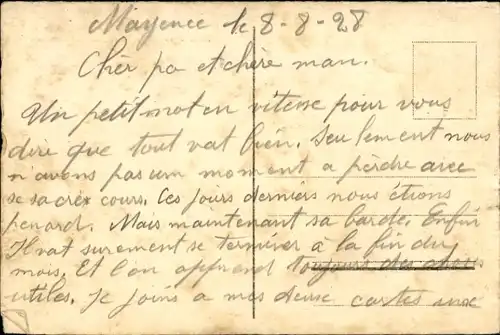 Mayence le 8-8-28
Chèr pa et chère man.
Un petit mot en vitesse pour vous
dire que tout vat bien. Seulement nous
n'avons pas um moment a pèrdre avec
se sacré cours. Ces jours derniers nous étions
penard. Mais maintenant sa barde. Enfin
Il vat surement se terminer à la fin du
mois. Et l'on apprend toujours des choses
utiles. Je joins a mes deux cartes une